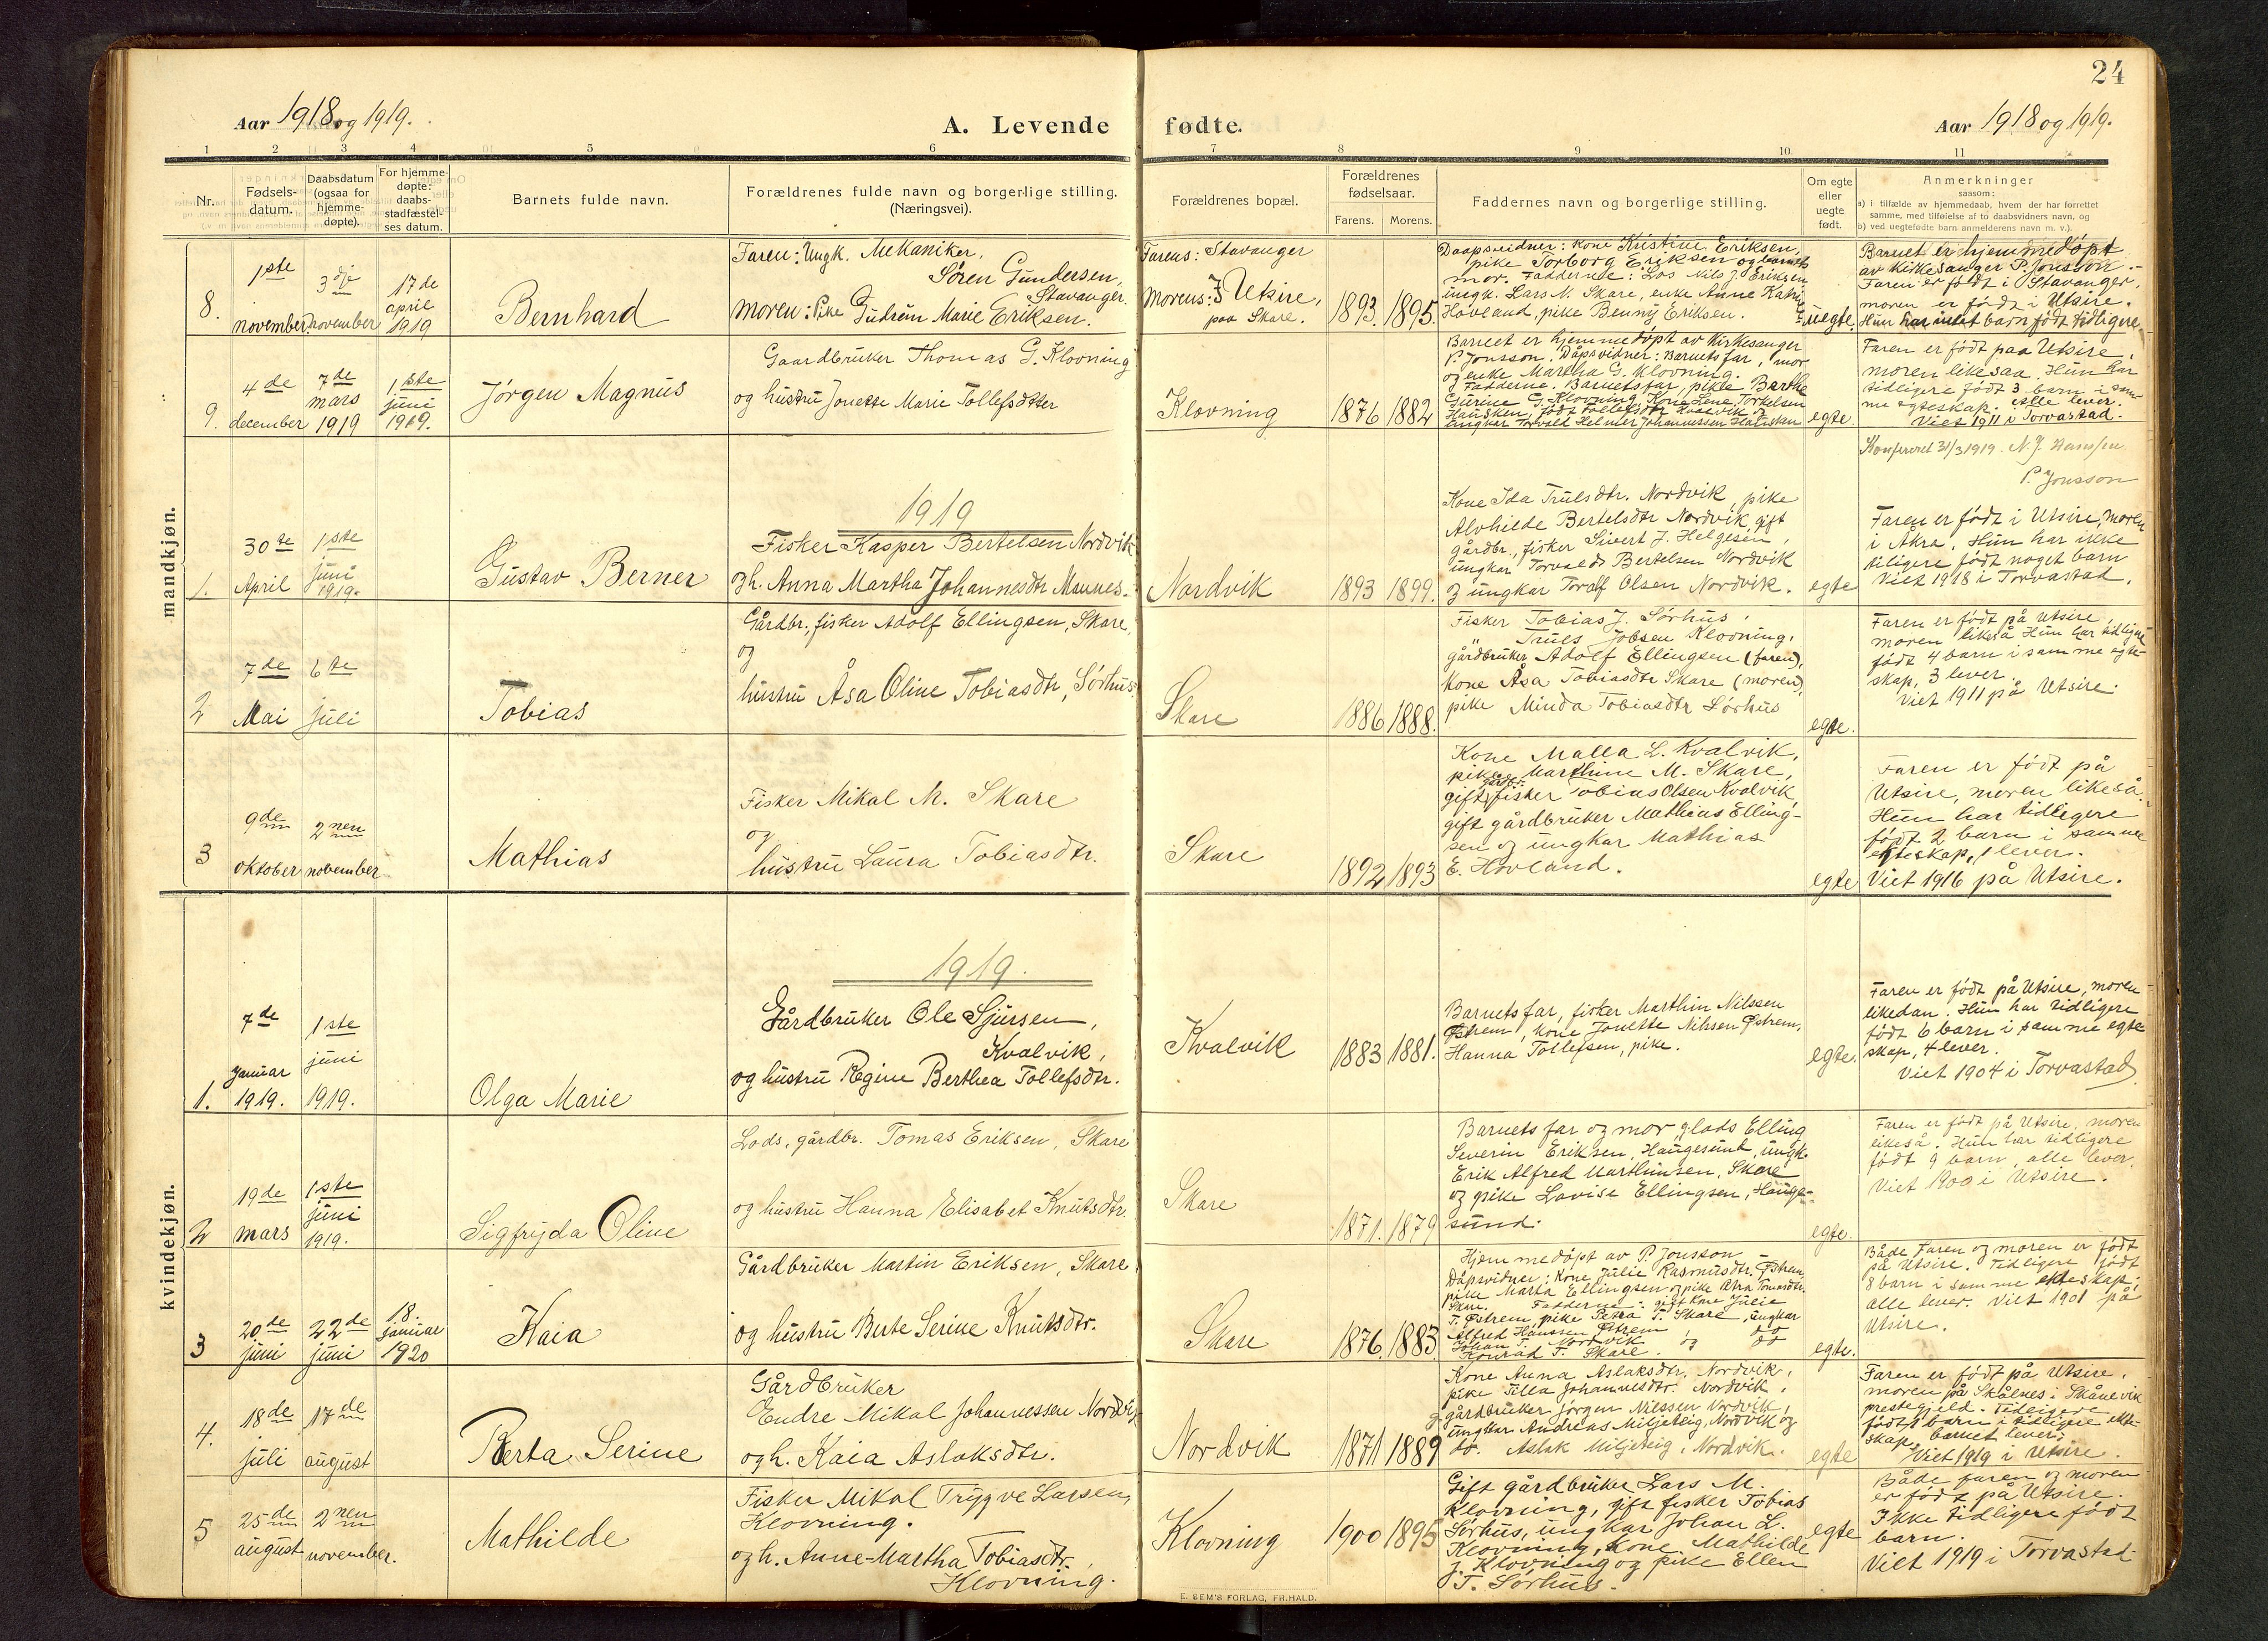 24
Aar 1918 og 1919.
A. Levende fødte.
Aar 1918 og 1919.
1 2 3 4 5 6 7 8 9 10 11
Nr.
Fødsels-
datum.
Daabsdatum
(ogsaa for
hjemme-
døpte).
For hjemme-
døpte:
daabs-
stadfæstel-
ses datum.
Barnets fulde navn.
Forældrenes fulde navn og borgerlige stilling.
(Næringsvei).
Forældrenes bopæl.
Forældrenes
fødselsaar.
Farens. Morens.
Faddernes navn og borgerlige stilling.
Om egte
eller
uegte
født.
Anmerkninger
saasom:
a) i tilfælde av hjemmedaab, hvem der har forrettet
samme, med tilføielse af to daabsvidners navn, og
b) ved uegtefødte barn anmelderens navn m. v.).
mandkjøn.
8.
1ste
november
3dje
november
17de
april
1919
Bernhard
Faren: Ungk. Mekaniker,
Sören Gundersen,
Stavanger.
Moren: Pike Gudrun Marie Eriksen.
Farens: Stavanger
Morens: Utsire,
paa Skare.
1893. 1895.
Daapsvidner: Kone Kristine Eriksen,
pike Torborg Eriksen og barnets
mor. Fadderne: Los Nils J. Eriksen
ungk. Lars N. Skare, enke Anne Katrine
Hovland, pike Benny Eriksen.
uegte.
Barnet er hjemmedøpt
av kirkesanger P. Jonsson.
Faren er født i Stavanger,
moren er født i Utsire.
Hun har intet barn født tidligere
9.
4de
december
7de
mars
1919
1ste
juni
1919.
Jørgen Magnus
Gaardbruker Thomas G. Klovning
og hustru Jonette Marie Tollefsdtter
Klovning
1876 1882
Barnet er hjemmedøpt av Kirkesanger
P. Jonsson. Dåpsvidner: Barnets far, mor
og enke Martha G. Klovning.
Fadderne. Barnets far, pike Barthe
Gurine G. Klovning, Kone Lene Torkelsen
Hausken, født Tollefsdtr Kvalvik og
ungkar Torvald Helmer Johannessen Hausken
egte.
Faren er født paa Utsire,
moren likesaa. Hun har
tidligere født 3 barn i sam-
me egteskap. Alle lever.
Viet 1911 i Torvastad.
Konfereret 31/3 1919. N. J. Hanssen
P. Jonsson
1919
1.
30te
April
1ste
juni
1919.
Gustav Berner
Fisker Kasper Bertelsen Nordvik
og h. Anna Martha Johannesdtr Mannes.
Nordvik
1893 1899.
Kone Ida Trulsdtr. Nordvik, pike
Alvhilde Bertelsdtr Nordvik, gift
gårdbr., fisker Sivert J. Helgesen,
ungkar Torvald Bertelsen Nordvik
og ungkar Toralf Olsen Nordvik.
egte
Faren er født i Utsire, moren
i Åkra. Hun har ikke
tiligere født noget barn
Viet 1918 i Torvastad.
2
7de
Mai
6te
juli
Tobias
Gårdbr., fisker Adolf Ellingsen, Skare,
og
hustru Åsa Oline Tobiasdtr, Sørhus.
Skare
1886 1888.
Fisker Tobias J. Sørhus,
" Truls Jobsen Klovning,
gårdbruker Adolf Ellingsen (faren),
Kone Åsa Tobiasdtr Skare (moren),
pike Minda Tobiasdtr Sørhus
egte.
Faren er født på Utsire,
moren likeså Hun har tidligere
født 4 barn i samme egte-
skap, 3 lever.
Viet 1911 på Utsire.
3
9de
oktober
2nen
november
Mathias
Fisker Mikal M. Skare
og
hustru Laura Tobiasdtr.
Skare
1892 1893
Kone Malla L. Kvalvik,
pike Marthine M. Skare,
gift gårdbr. fisker Tobias Olsen Kvalvik,
gift gårdbruker Mathias Elling-
sen og ungkar Mathias
E. Hovland.
egte
Faren er født på
Utsire, moren likeså.
Hun har tidligere
født 2 barn i samme
egteskap, 1 lever.
Viet 1916 på Utsire.
kvindekjøn.
1919.
1.
7de
Januar
1919.
1ste
juni
1919.
Olga Marie
Gårdbruker Ole Sjursen,
Kvalvik,
og hustru Regine Berthea Tollefsdtr.
Kvalvik
1883 1881.
Barnets far, fisker Marthin Nilssen
Østrem, Kone Jonette Nilsen Østrem,
Hanna Tollefsen, pike.
egte.
Faren er født på Utsire, moren
likedan. Hun har tidligere
født 6 barn i samme egte
skap, 4 lever.
Viet 1904 i Torvastad
2
19de
mars
1ste
juni
1919.
Sigfryda Oline
Lods, gårdbr. Tomas Eriksen, Skare
og hustru Hanna Elisabet Knutsdtr.
Skare
1871. 1879
Barnets far og mor, glods Elling
Severin Eriksen, Haugesund, ungk.
Erik Alfred Marthinsen, Skare
og pike Lovise Ellingsen, Hauge-
sund.
egte.
Faren er født på Utsire, moren
likeså. Hun har tidligere
født 9 barn, alle lever.
Viet 1900 i Utsire.
3
20de
juni
22de
juni
18.
januar
1920
Kaia
Gårdbruker Martin Eriksen, Skare
og hustru Berte Serine Knutsdtr.
Skare
1876. 1883
Hjemmedøpt av P. Jonsson
Dåpsvidner: Kone Julie Rasmusdtr. Østrem
pike Marta Ellingsen og pike Petra Tomasdtr.
Skare. Fadderne: gift Kone Julie
T. Østrem, pike Petra T. Skare, ungkar
Alfred Hanssen Østrem
Johan T. Nordvik og do
Konrad T. Skare. do
egte.
Både Faren og moren er født
på Utsire. Tidligere født
8 barn i samme ekteskap;
alle lever. Viet 1901 på
Utsire.
4.
18de
juli
17de
august
Berta Serine
Gårdbruker
Endre Mikal Johannessen Nordvik
og h. Kaia Aslaksdtr.
Nordvik
1871 1889
Kone Anna Aslaksdtr. Nordvik,
pike Tilla Johannesdtr. Nordvik,
gårdbruker Jørgen Nilssen Nordvik,
ungkar Andreas Miljeteig, Nordvik og
do. Aslak Miljeteig, Nordvik.
egte
Faren er født på Utsire,
moren på Skålnes i Skånevik
prestegjeld. Tidligere
født 1 barn i tidligere ekte-
skap, barnet lever.
Viet 1919 i Utsire.
5
25de
august
2nen
november.
Mathilde
Fisker Mikal Trygve Larsen,
Klovning.
og h. Anne-Martha Tobiasdtr.,
Klovning.
Klovning
1900 1895
Gift gårdbruker Lars M.
Klovning, gift fisker Tobias
Sørhus, ungkar Johan L.
Klovning, Kone Mathilde
J. Klovning og pike Ellen
T. Sørhus.
egte
Både faren og moren
er født på Utsire.
Ikke tidligere født
barn.
Viet 1919 i Torvastad
E. SEM'S FORLAG, FR.HALD.